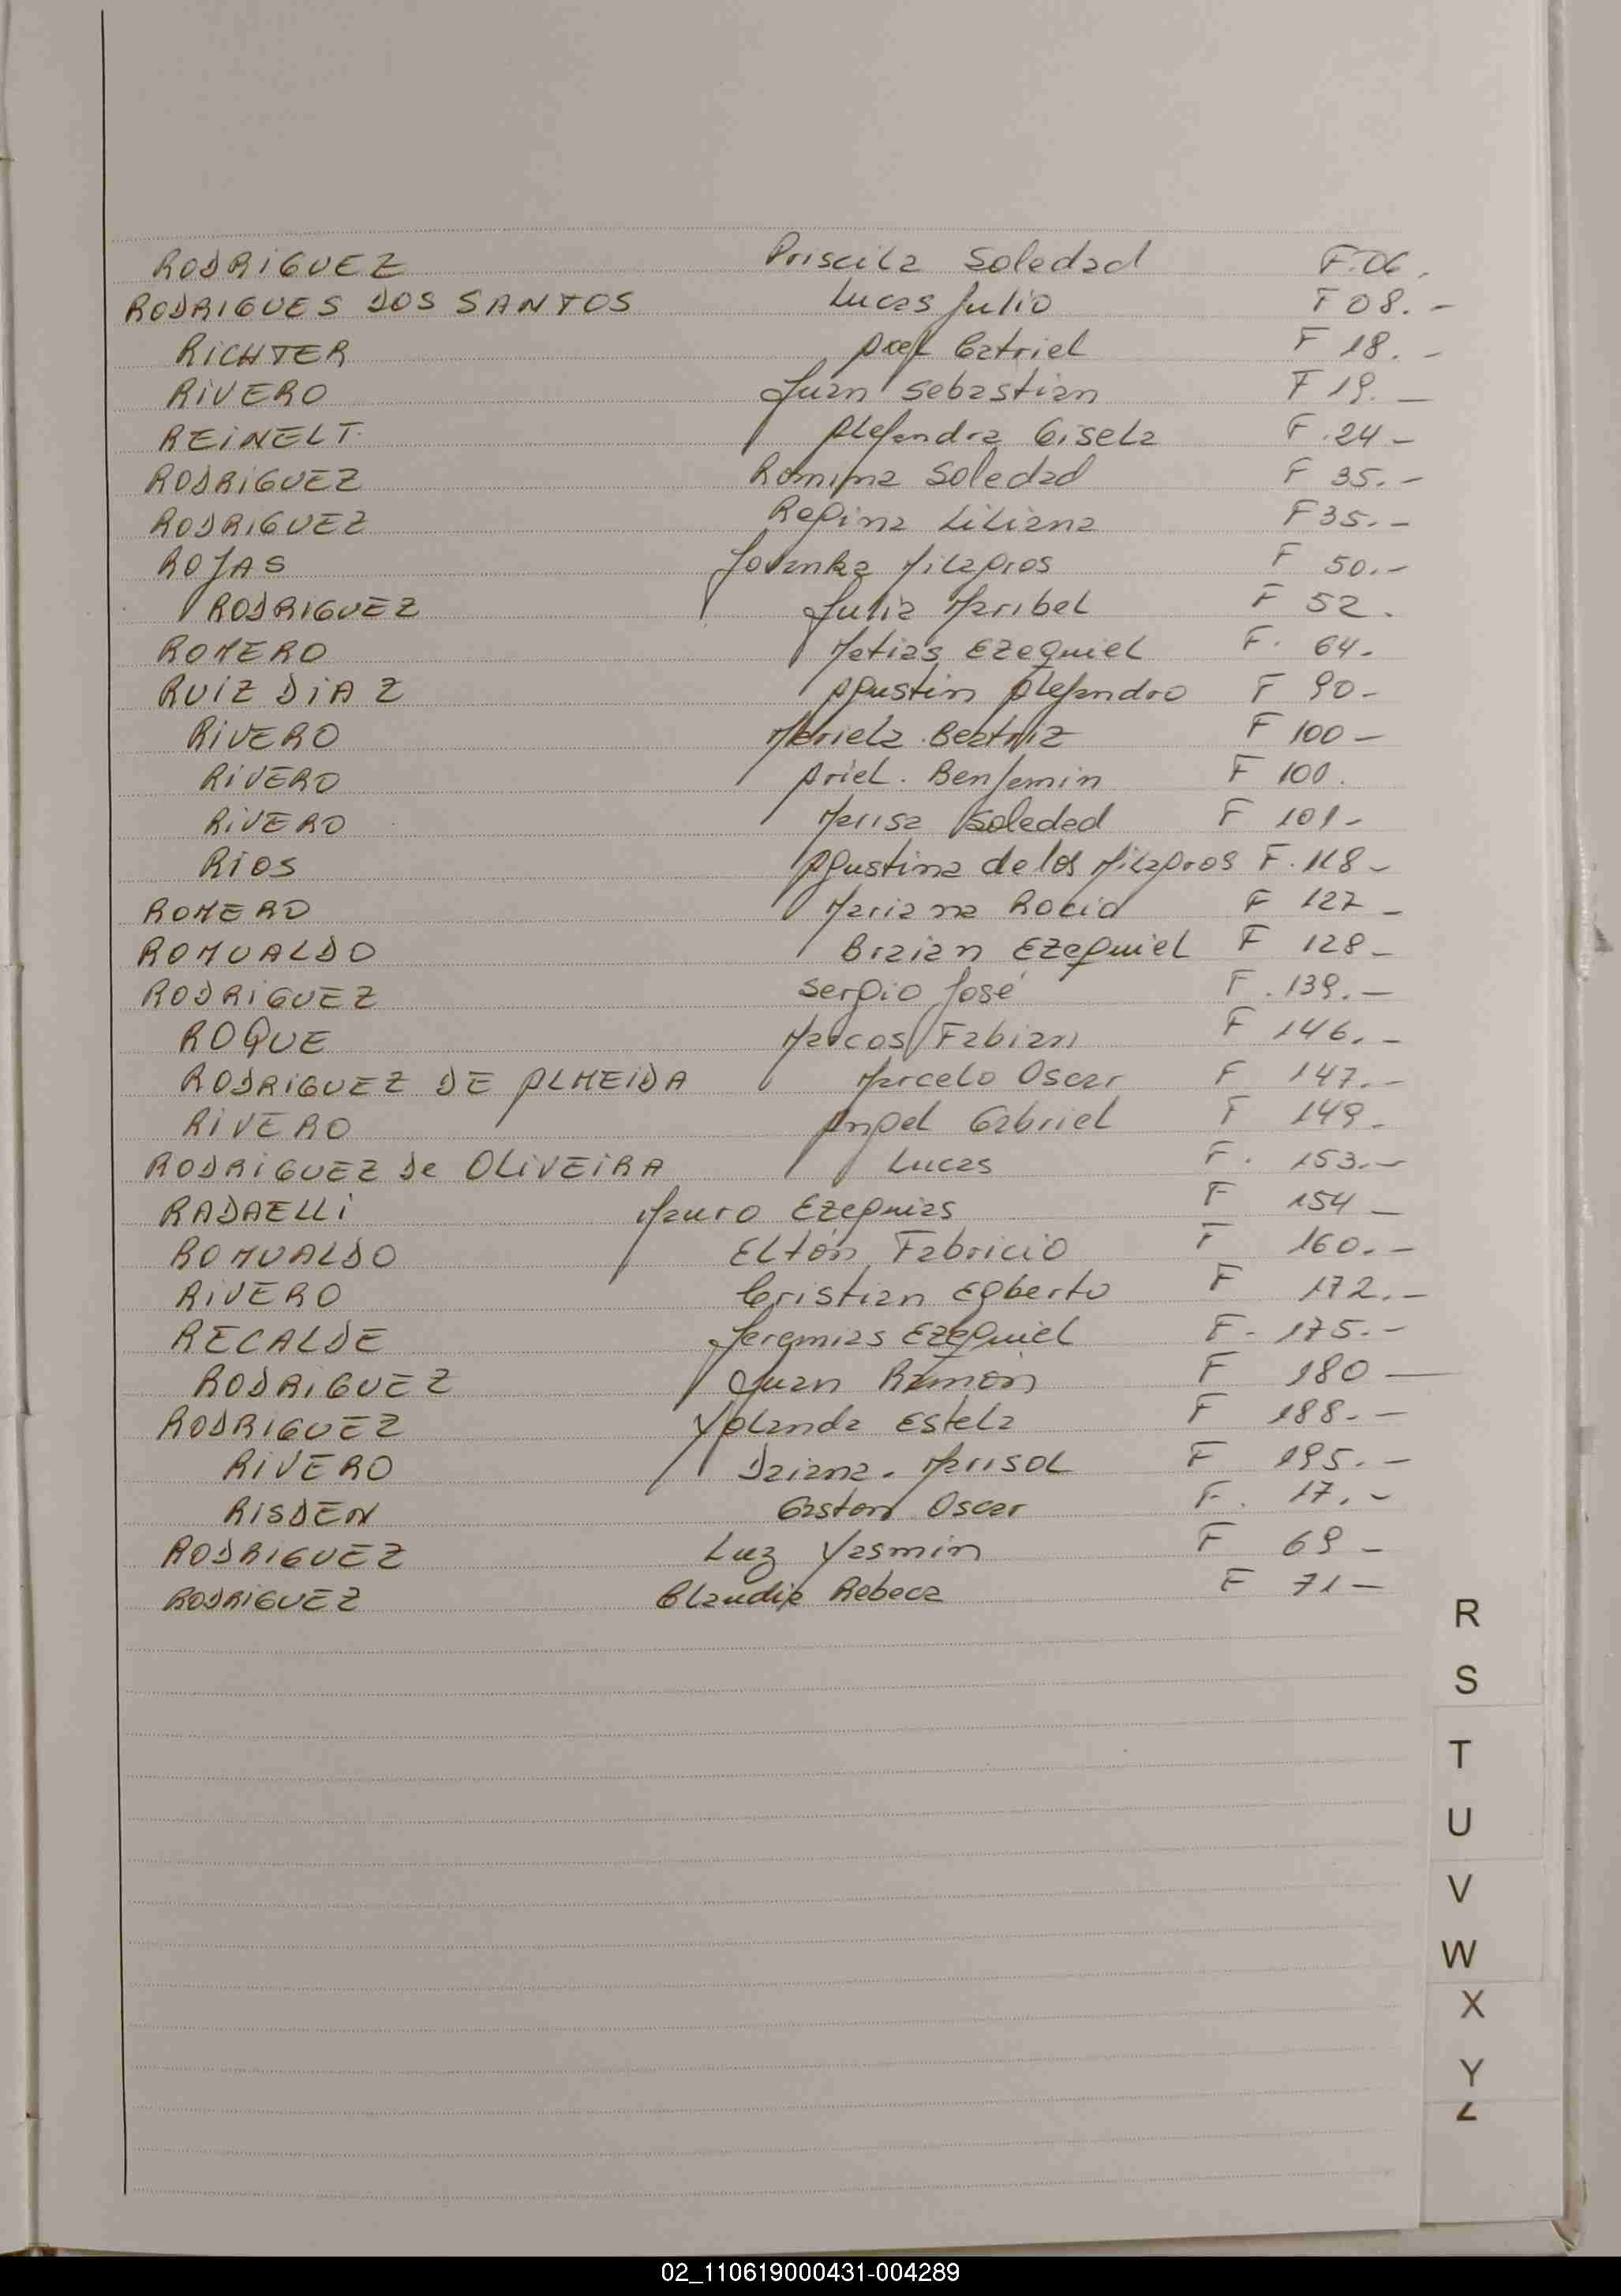 RODRiGUEZ Priscila Soledad F.06.
RODRIGUES DOS SANTOS Lucas Julio F 08.-
RiCHTER Axel Gatriel F 18.-
RiVERO Juan Sebastian F 19.-
REiNELT. Alejandra Gisela F.24-
RODRiGUEZ Romina Soledad F 35.-
RODRIGUEZ Regina Liliana F 35.-
ROJAS Jovanka Milagros F 50.-
RODRIGUEZ Julia Maribel F 52.
ROMERO Matias Ezequiel F. 64.
RUIZ DiAZ Agustin Alejandro F 90-
RiVERO Mariela Beatriz F 100-
RiVERO Ariel. Benjamin F 100.
RiVERO Marisa Soledad F 101-
RiOS Agustina de los Milagros F. 118-
ROMERO Mariana Rocio F 127-
ROMUALDO Braian Ezequiel F 128-
RODRiGUEZ Sergio José F.139.-
ROQUE Marcos Fabian F 146.-
RODRiGUEZ DE ALMEiDA Marcelo Oscar F 147.-
RiVERO Angel Gabriel F 149.
RODRiGUEZ De OLiVEiRA Lucas F. 153.-
RADAELLi Mauro Ezequias F 154-
ROMUALDO Eltón Fabricio F 160.-
RiVERO Cristian Egberto F 172.-
RECALDE Jeremias Ezequiel F. 175.-
RODRiGUEZ Juan Ramón F 180-
RODRIGUEZ Yolanda Estela F 188.-
RiVERO Daiana. Marisol F 195.-
RISDEN Gaston Oscar F. 17.-
RODRIGUEZ Luz Yasmin F 69-
RODRiGUEZ Claudia Rebeca F 71-
R
S
T
U
V
W
X
Y
Z
02_110619000431-004289